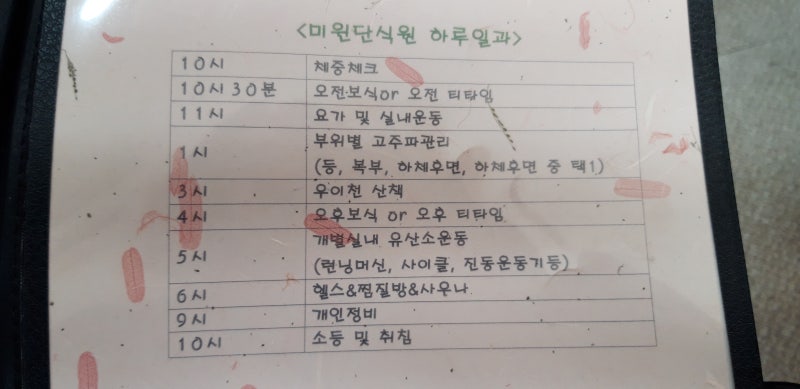 <미원단식원 하루일과>
10시 체중체크
10시 30분 오전보식or 오전 티타임
11시 요가 및 실내운동
1시 부위별 고주파관리
(등, 복부, 하체후면, 하체후면 중 택1)
3시 우이천 산책
4시 오후보식 or 오후 티타임
5시 개별실내 유산소운동
(런닝머신, 사이클, 진동운동기등)
6시 헬스&찜질방&사우나
9시 개인정비
10시 소등 및 취침